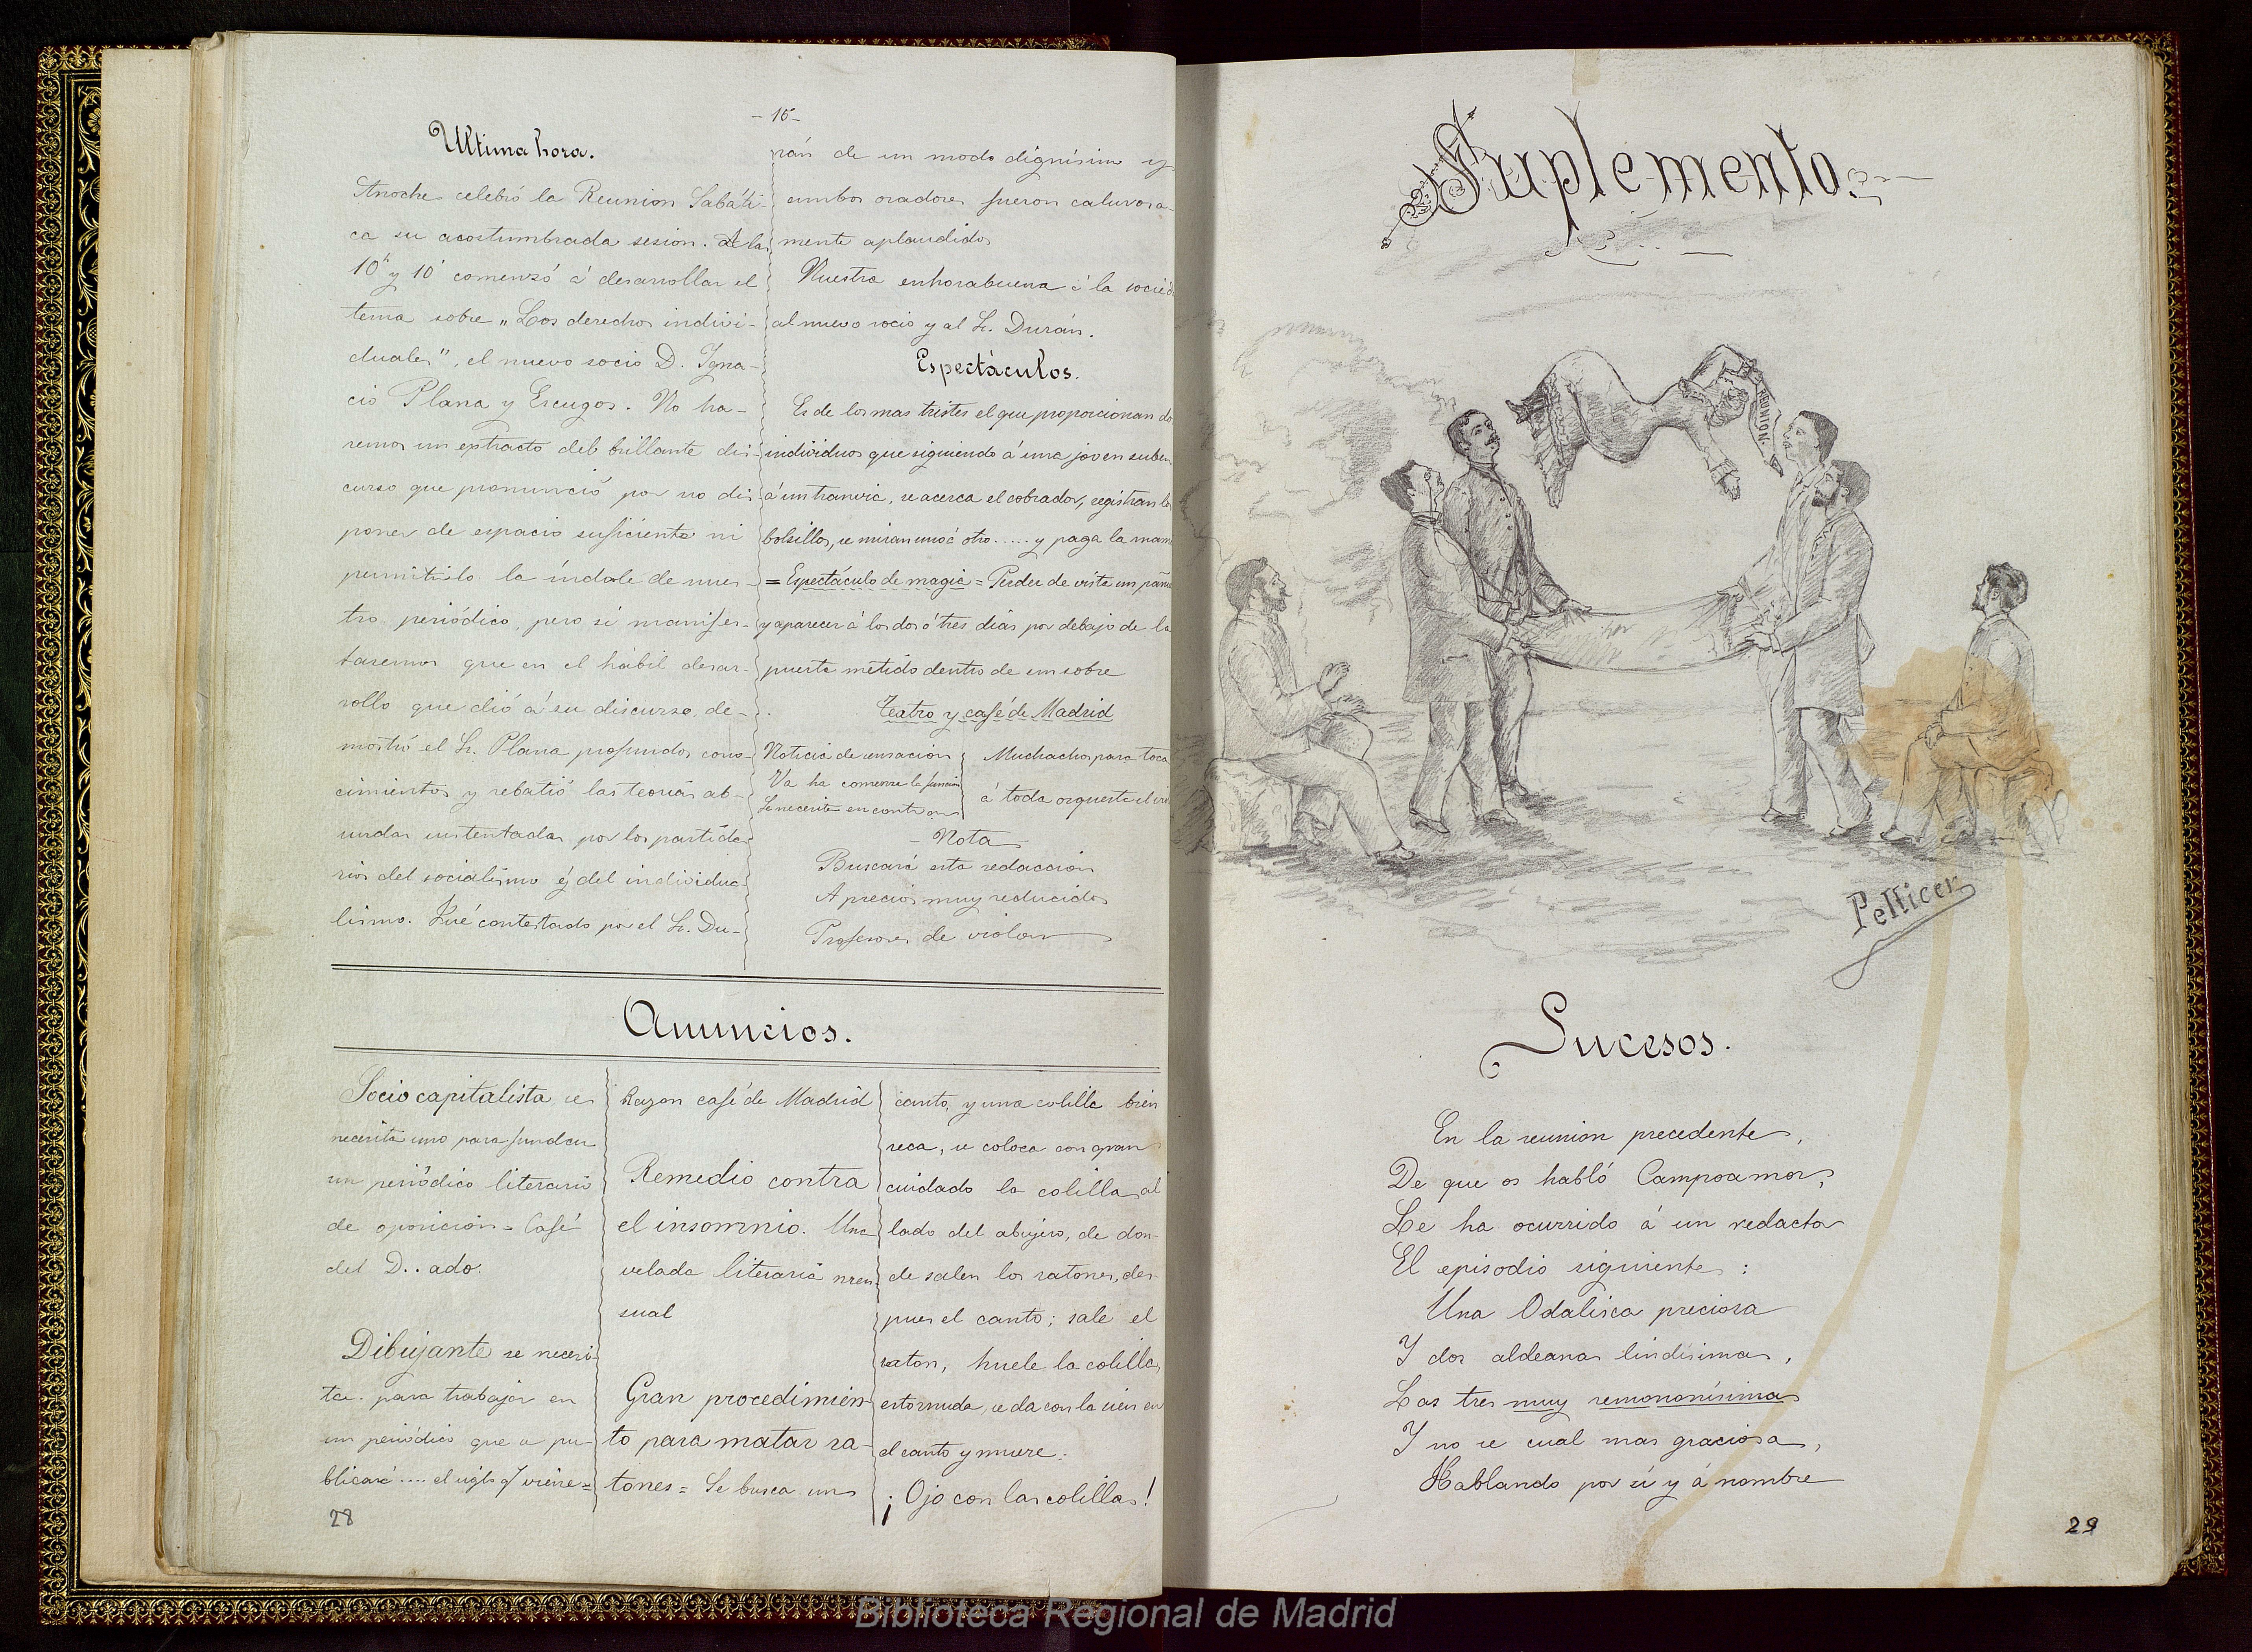 - 15 -
Ultima hora.
Anoche celebró la Reunion Sabáti-
ca su acostumbrada sesion. A las
10h y 10' comenzó á desarrollar el
tema sobre „Los derechos indivi-
duales", el nuevo socio D. Igna-
cio Plana y Escugos. No ha-
remos un extracto del brillante dis-
curso que pronunció por no dis-
poner de espacio suficiente ni
permitirlo la índole de nues-
tro periódico, pero si manifes-
taremos que en el hábil desar-
rollo que dió á su discurso, de-
mostró el Sr. Plana profundos cono-
cimientos y rebatió las teorias ab-
surdas sustentadas por los partida-
rios del socialismo y del individua-
lismo. Fué contestado por el Sr. Du-
rán de un modo dignísimo y
ambos oradores fueron calurosa-
mente aplaudidos
Nuestra enhorabuena á la socied
al nuevo socio y al Sr. Durán.
Espectáculos.
Es de los mas tristes el que proporcionan do
individuos que siguiendo á una joven suben
á un tranvia, se acerca el cobrador, registran lo
bolsillos, se miran uno á otro ..... y paga la mam
= Espectáculo de magia = Perder de vista un pañue
y aparecer á los dos ó tres dias por debajo de la
puerta metido dentro de un sobre
Teatro y café de Madrid
Noticia de sensación
Va ha comenzar la función
Se necesita encontrar
Muchachos para toca
á toda orquesta el vio
- Nota
Buscará esta redacción
A precios muy reducidos
Profesores de violon
Anuncios.
Socio capitalista se
necesita uno para fundar
un periódico literario
de oposición = Café
del D..ado.
Dibujante se necesi-
ta para trabajar en
un periódico que se pu-
blicará .... el siglo q. viene =
28
Razon café de Madrid
Remedio contra
el insomnio. Una
velada literaria men-
sual
Gran procedimien-
to para matar ra-
tones = Se busca un
canto, y una colilla bien
seca, se coloca con gran
cuidado la colilla al
lado del abujero, de don-
de salen los ratones, des-
pues el canto; sale el
raton, huele la colilla,
estornuda, se da con la sien en
el canto y muere.
¡Ojo con las colillas!
Suplemento
REUNION.
Pellicer
Sucesos.
En la reunion precedente,
De que os habló Campoamor,
Le ha ocurrido á un redactor
El episodio siguiente:
Una Odalisca preciosa
Y dos aldeanas lindísimas,
Las tres muy remononísimas
Y no se cual mas graciosa,
Hablando por sí y á nombre
29
Biblioteca Regional de Madrid